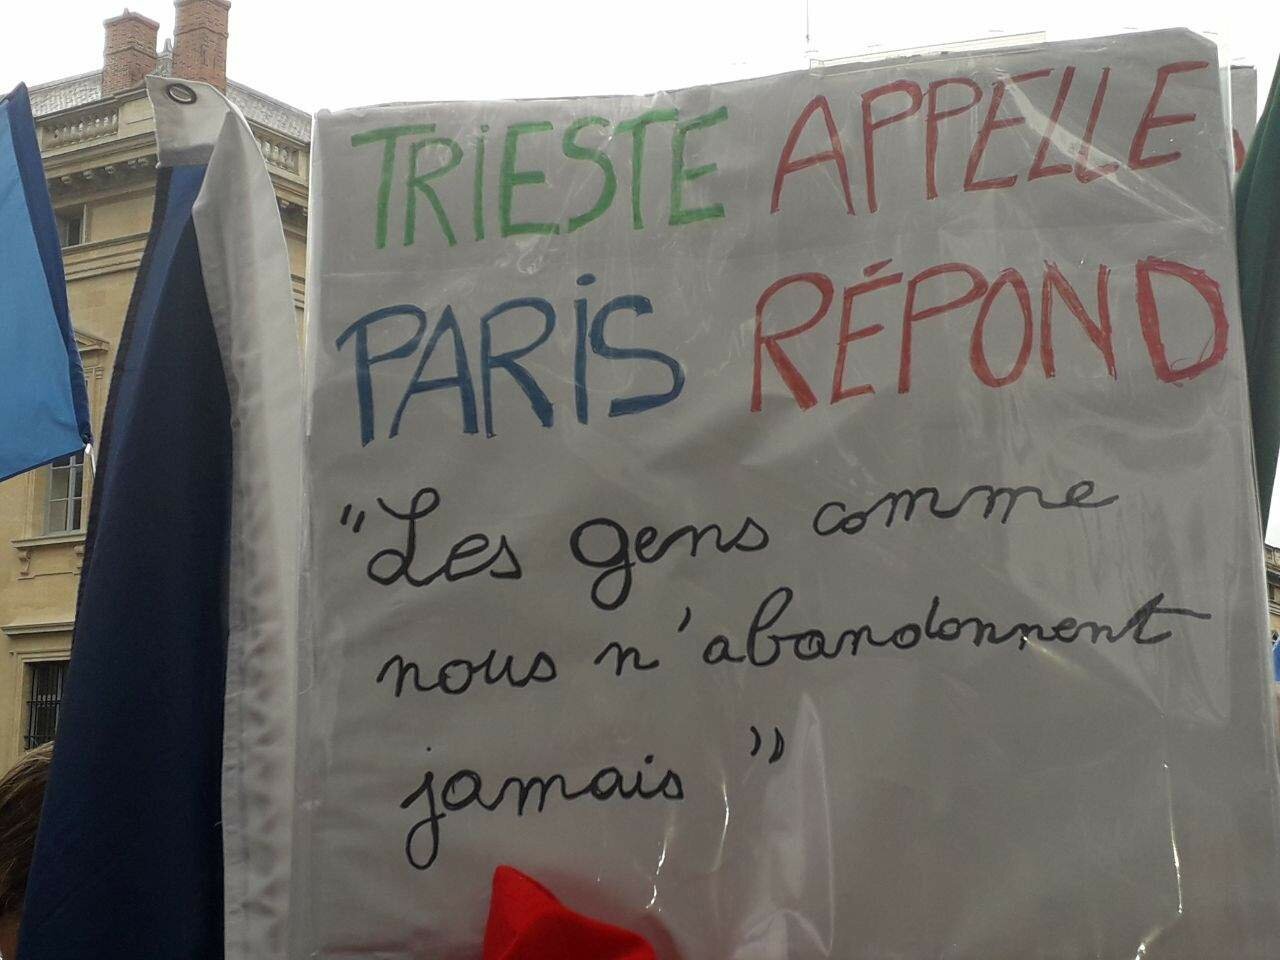 TRIESTE APPELLE
PARIS RÉPOND
"Les gens comme
nous n'abandonnent
jamais"